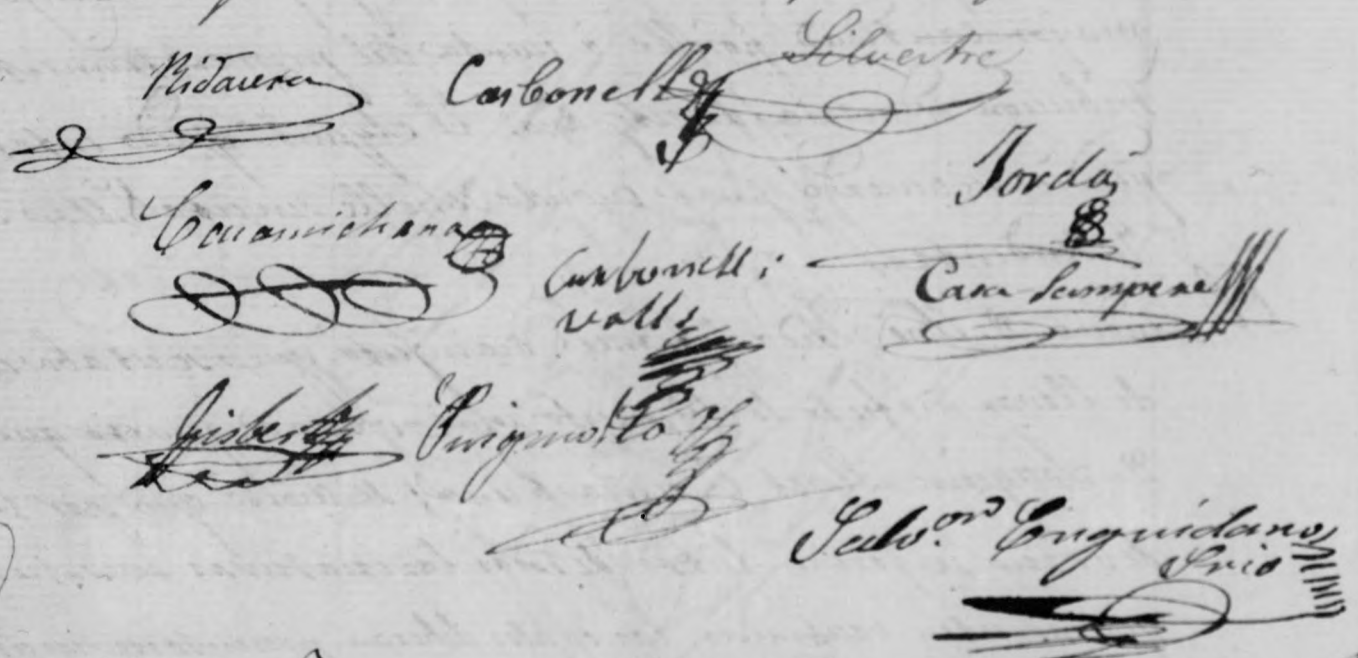 Ridaura Carbonell Silvestre
Jordá
Casamichana
Carbonell i
Valls
Casa-Sempere
Gisbert Puigmoltó
Salv.or Enguidanos
Srio